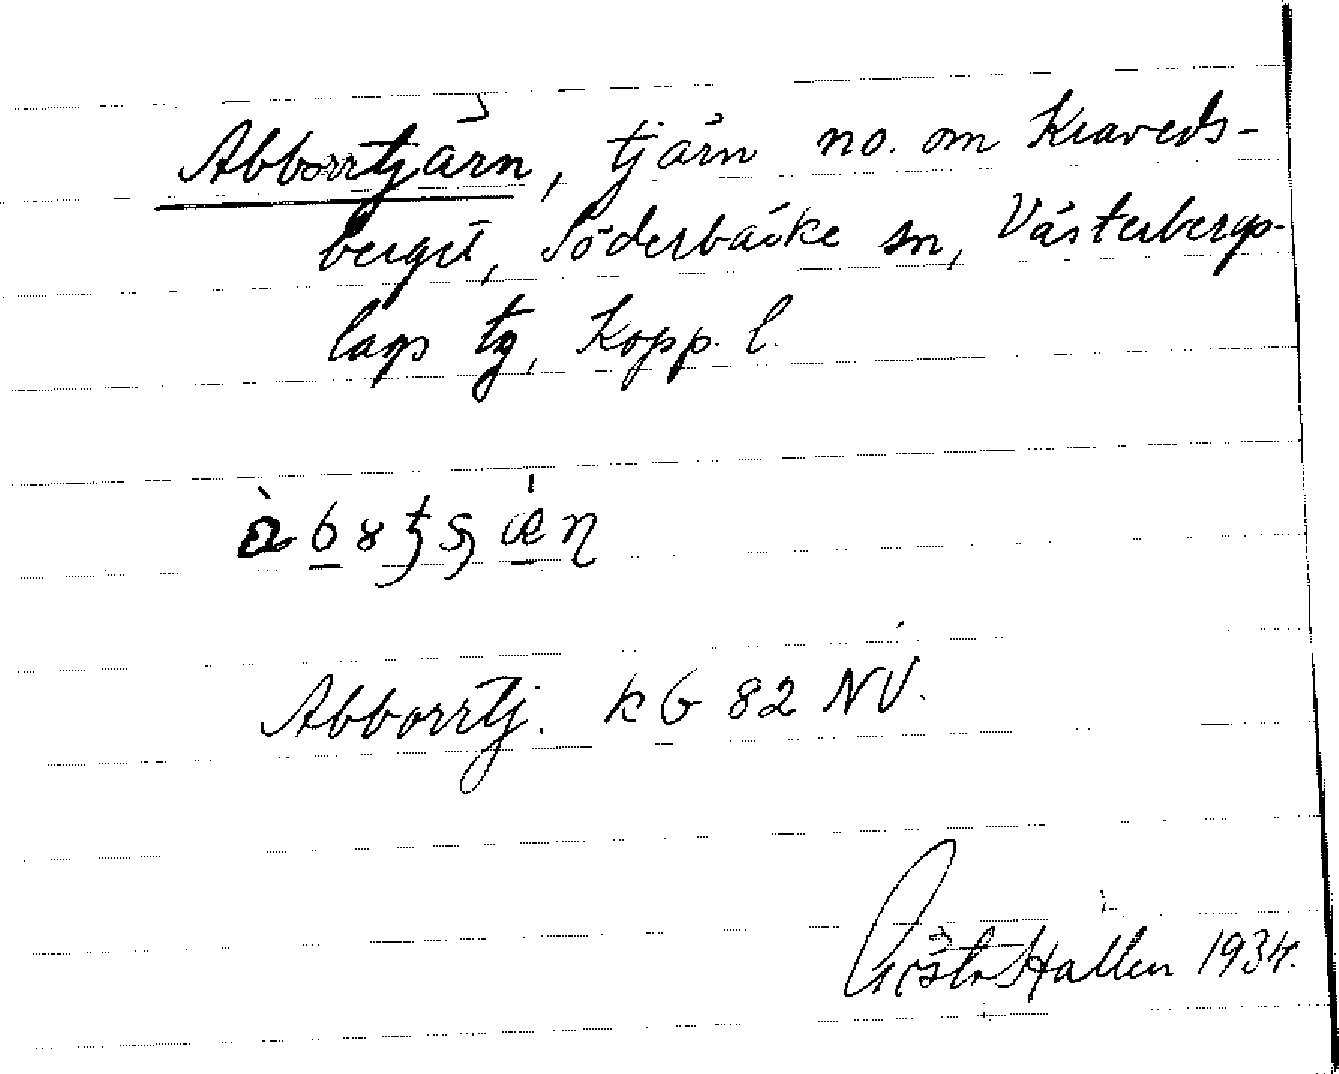 Abborrtjärn, tjärn no. om Kraveds-
berget, Söderbärke sn, Västerbergs-
lags tg, Kopp. l.
Abborrtj. k G 82 NV.
Gösta Hallén 1934.